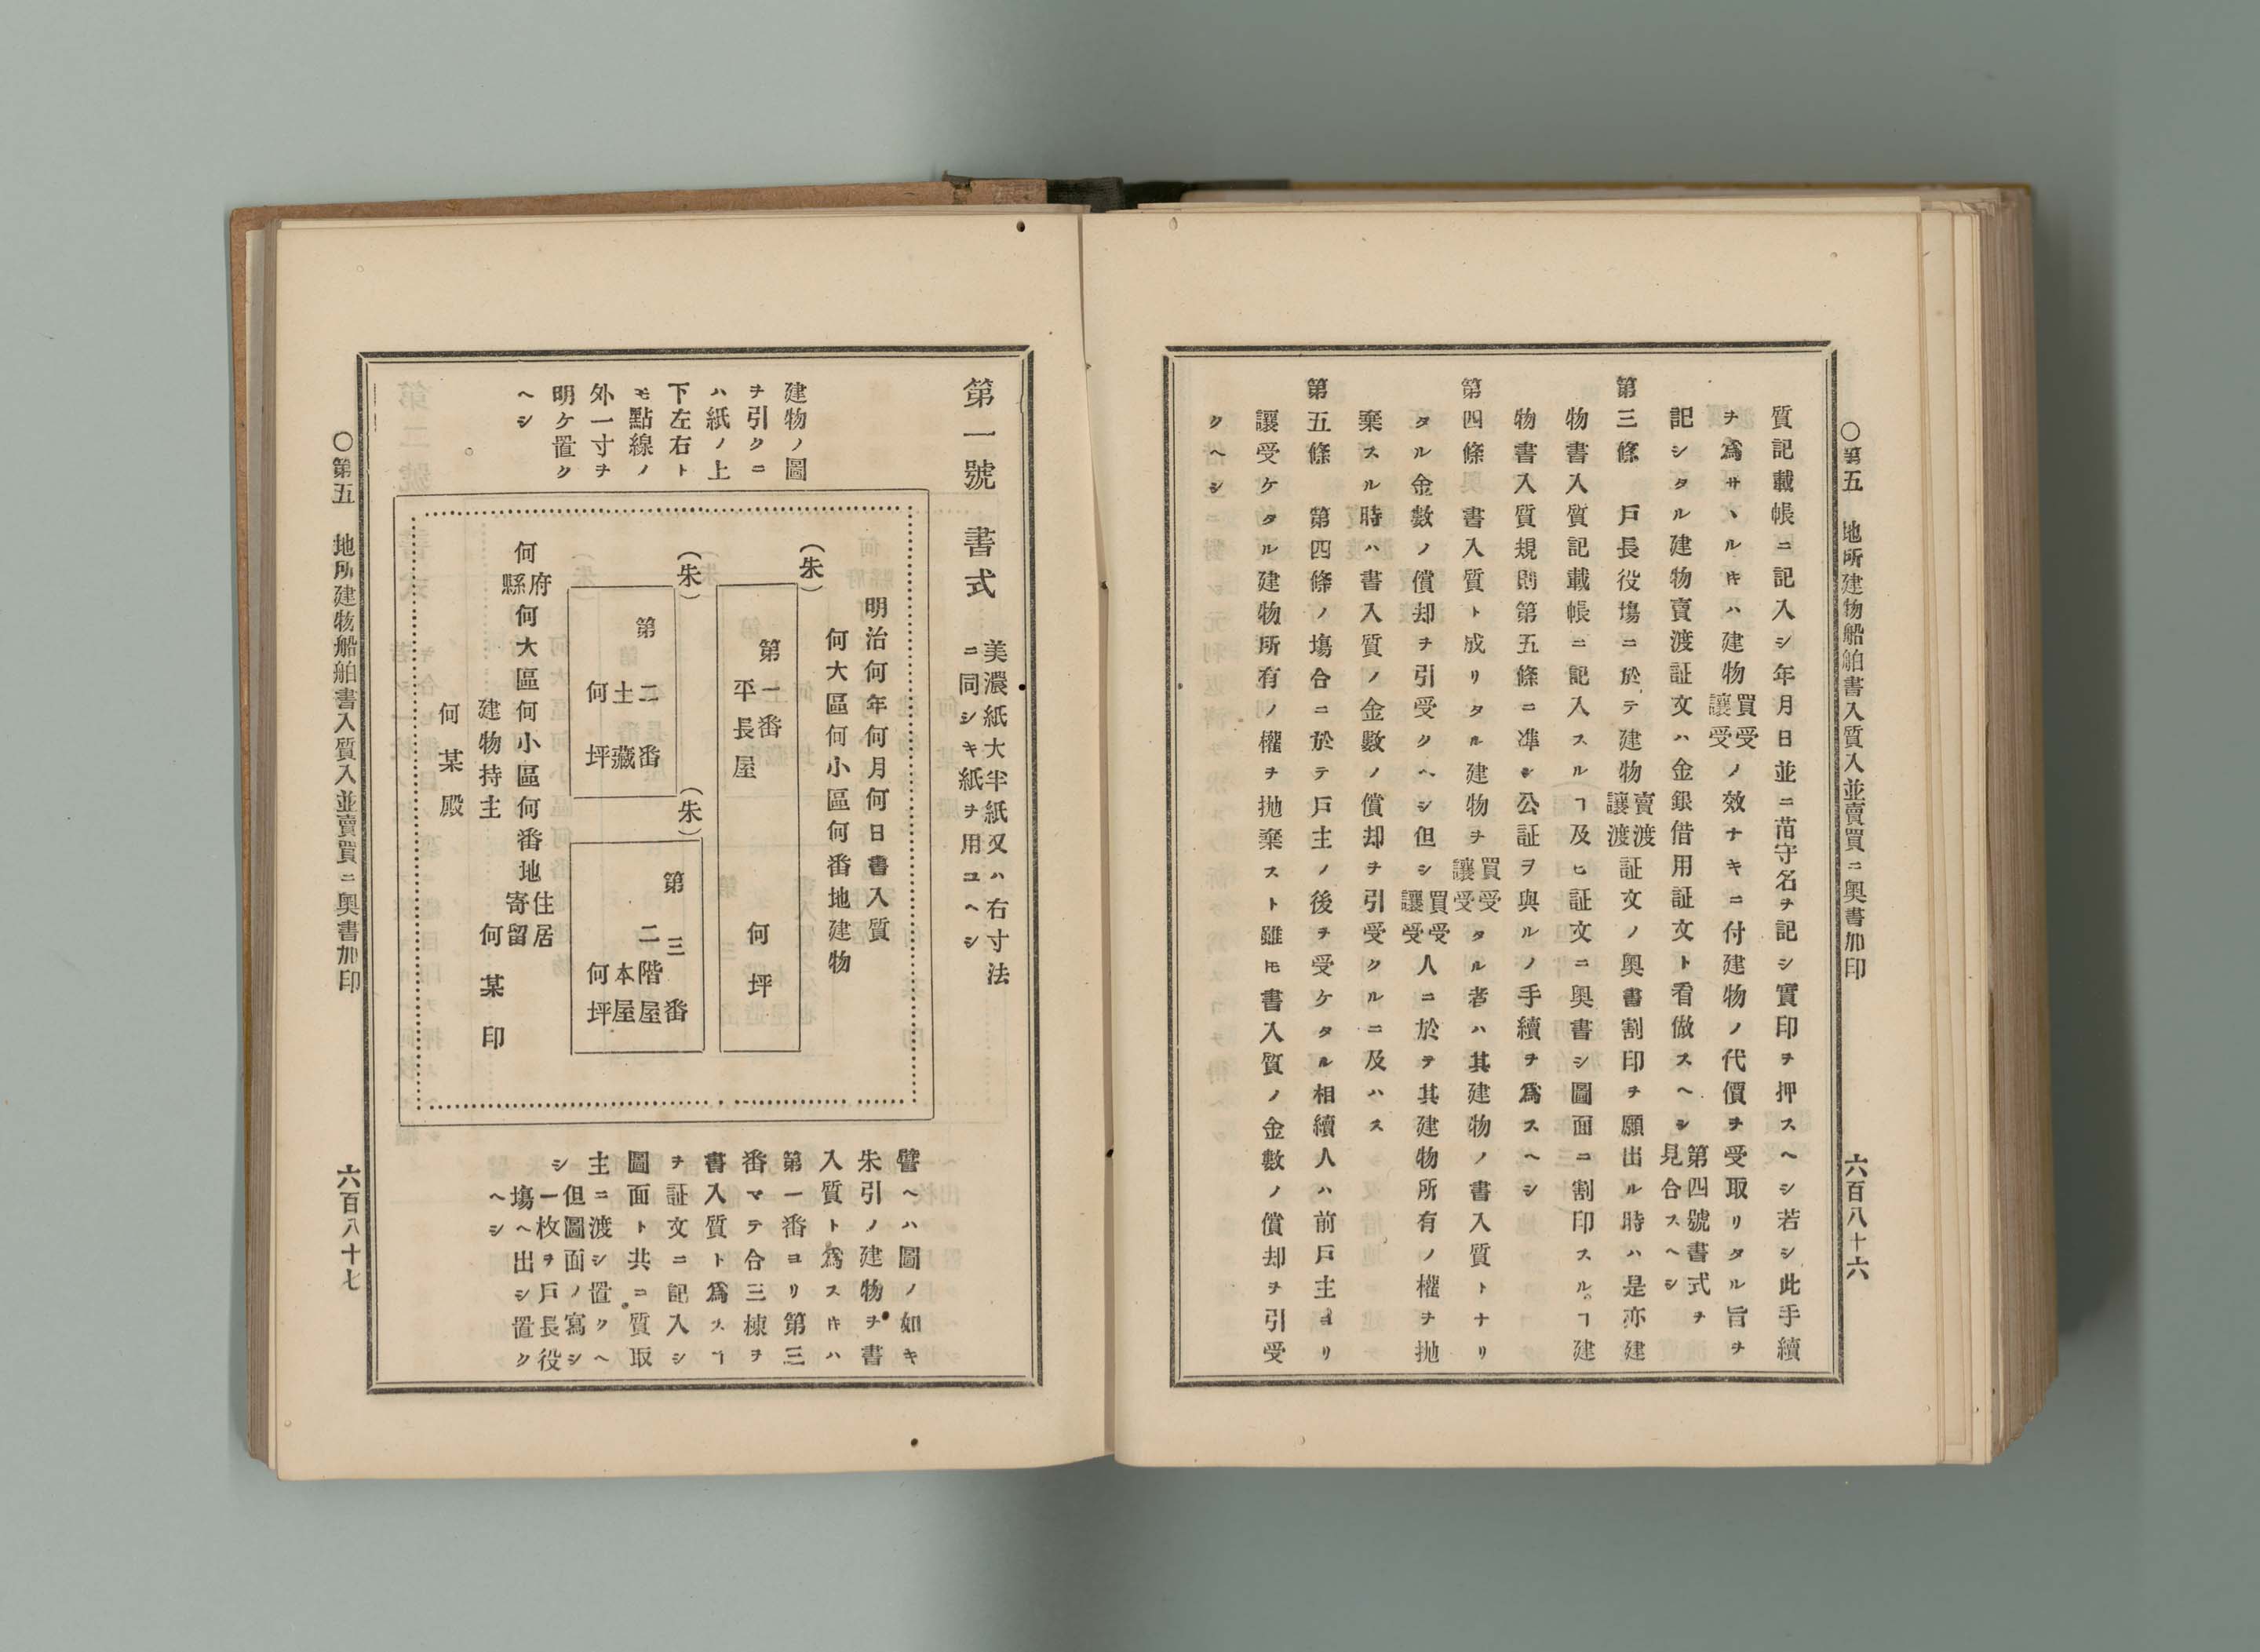 ○第五　地所建物船舶書入質入並賣買ニ奧書加印　六百八十六
質記載帳ニ記入シ年月日並ニ苗字名ヲ記シ實印ヲ押スヘシ若シ此手續
ヲ爲サヽルキハ建物買受讓受ノ效ナキニ付建物ノ代價ヲ受取リタル旨ヲ
記シタル建物賣渡証文ハ金銀借用証文ト看做スヘシ第四號書式ヲ見合スヘシ
第三條　戶長役塲ニ於テ建物賣渡讓渡証文ノ奧書割印ヲ願出ル時ハ是亦建
物書入質記載帳ニ記入スルヿ及ヒ証文ニ奧書シ圖面ニ割印スルヿ建
物書入質規則第五條ニ凖シ公証ヲ與ルノ手續ヲ爲スヘシ
第四條　書入質ト成リタル建物ヲ買受讓受タル者ハ其建物ノ書入質トナリ
タル金數ノ償却ヲ引受クヘシ但シ買受讓受人ニ於テ其建物所有ノ權ヲ抛
棄スル時ハ書入質ノ金數ノ償却ヲ引受クルニ及ハス
第五條　第四條ノ塲合ニ於テ戶主ノ後ヲ受ケタル相續人ハ前戶主ヨリ
讓受ケタル建物所有ノ權ヲ抛棄スト雖𪜈書入質ノ金數ノ償却ヲ引受
クヘシ
第一號　書式　美濃紙大半紙又ハ右寸法
ニ同シキ紙ヲ用ユヘシ
建物ノ圖
ヲ引クニ
ハ紙ノ上
下左右ト
モ點線ノ
外一寸ヲ
明ケ置ク
ヘシ
明治何年何月何日書入質
何大區何小區何番地建物
（朱）
第一番
平長屋　何坪
（朱）
第二番
土藏
何坪
（朱）
第三番
二階屋
本屋
何坪
何府縣何大區何小區何番地住居寄留
建物持主　何某印
何某殿
譬ヘハ圖ノ如キ
朱引ノ建物ヲ書
入質ト爲スキハ
第一番ヨリ第三
番マテ合三棟ヲ
書入質ト爲スヿ
ヲ証文ニ記入シ
圖面ト共ニ質取
主ニ渡シ置クヘ
シ但圖面ノ寫シ
一枚ヲ戶長役
塲ヘ出シ置ク
ヘシ
○第五　地所建物船舶書入質入並賣買ニ奧書加印　六百八十七